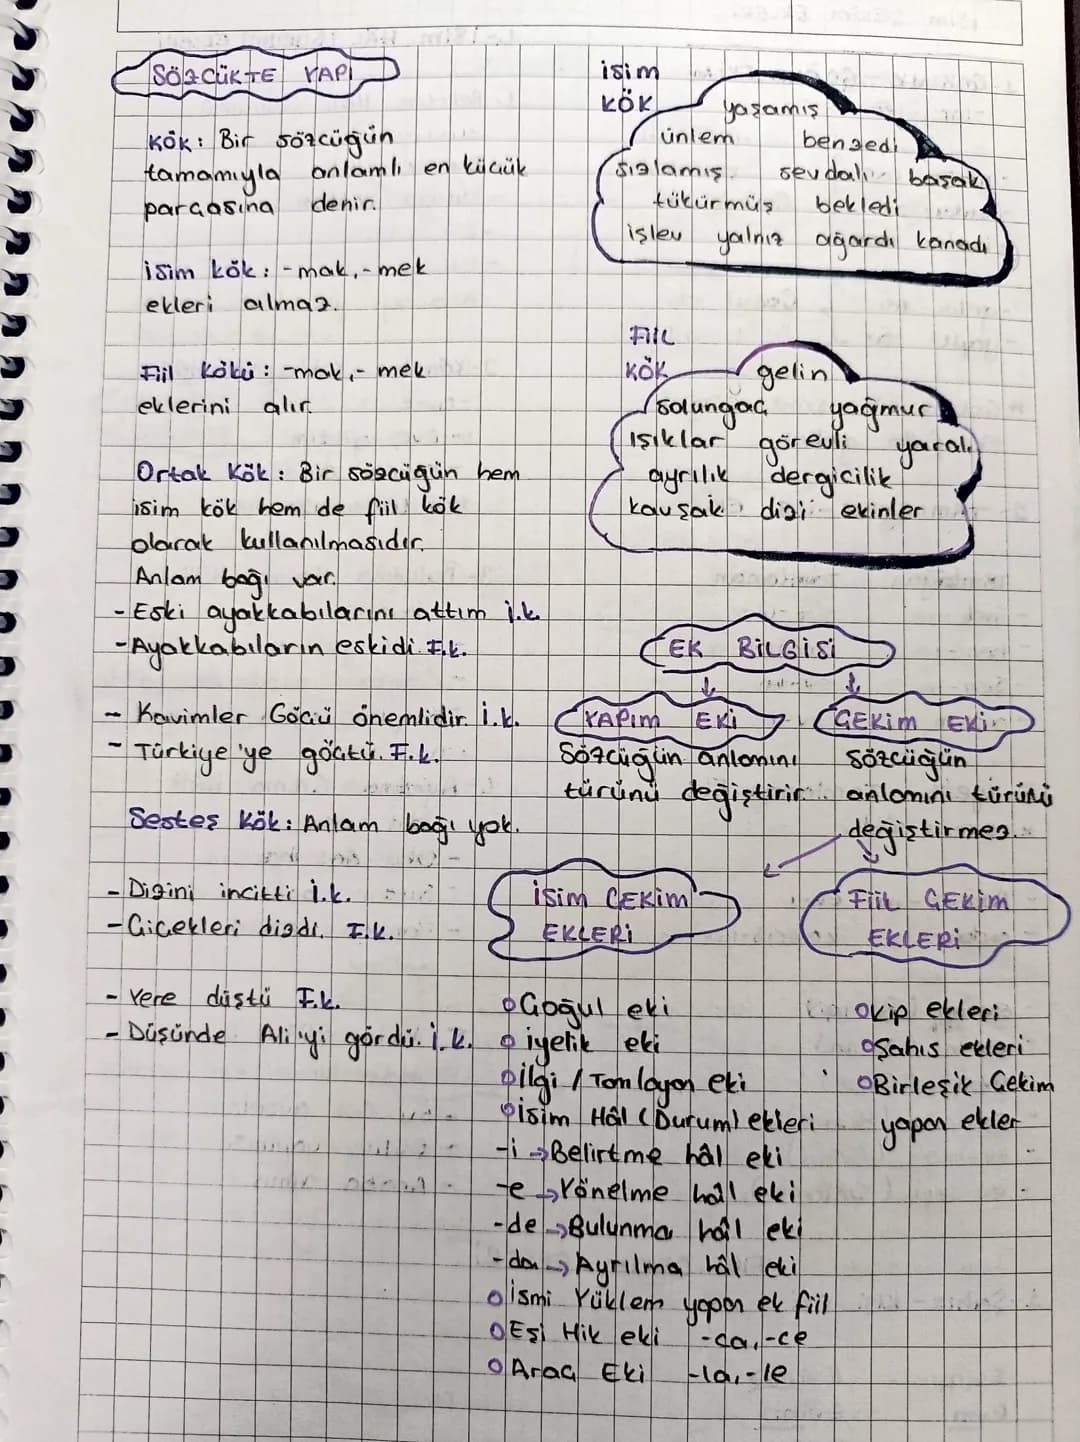 SÖZCÜKTE YAPI
Kök: Bir sözcüğün
tamamıyla anlamlı en küçük
parçasına denir.
isim kök: -mak, -mek
ekleri almaz.
Fiil kökü: -mak, -mek
eklerini alır.
Ortak Kök: Bir sözcüğün hem
isim kök hem de fiil kök
olarak kullanılmasıdır.
Anlam bağı var.
- Eski ayakkabılarını attım i.k.
- Ayakkabıların eskidi F.k.
- Kavimler Göçü önemlidir. i.k.
- Türkiye'ye göçtü. F.k.
Sesteş Kök: Anlam bağı yok.
- Dizini incitti i.k.
- Çiçekleri dizdi. F.k.
- Yere düştü F.k.
- Düşünde Ali'yi gördü. i.k.
isim
KÖK
yaşamış
ünlem benzedi
sızlamış sevdalı başak
tükürmüş bekledi
işlev yalnız ağardı kanadı
FİİL
KÖK
gelin
solungaç yağmur
ışıklar görevli yaralı
ayrılık dergicilik
kavşak dizi ekinler
EK BİLGİSİ
YAPIM EKİ
Sözcüğün anlamını
türünü değiştirir.
ÇEKİM EKİ
sözcüğün
anlamını türünü
değiştirmez.
İSİM ÇEKİM
EKLERİ
Çoğul eki
iyelik eki
ilgi / Tamlayan eki
isim Hâl (Durum) ekleri
-i → Belirtme hâl eki
-e → Yönelme hâl eki
-de → Bulunma hâl eki
-da → Ayrılma hâl eki
ismi Yüklem yapan ek fiil
Eşi Hik eki -ca, -ce
Araç Eki -la, -le
Fiil ÇEKİM
EKLERİ
kip ekleri
Şahıs ekleri
Birleşik Çekim
yapan ekler